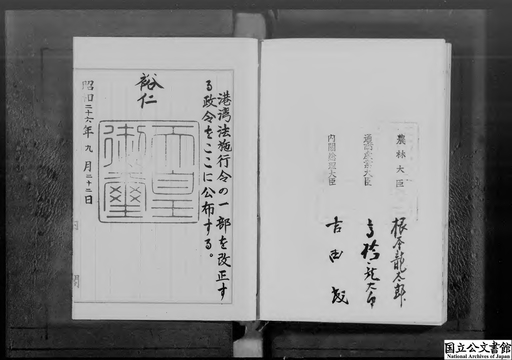 農林大臣
根本龍太郎
通商産業大臣
高橋龍太郎
内閣総理大臣
吉田茂
港湾法施行令の一部を改正す
る政令をここに公布する。
裕仁
天皇
御璽
昭和二十六年九月二十二日
国立公文書館
National Archives of Japan